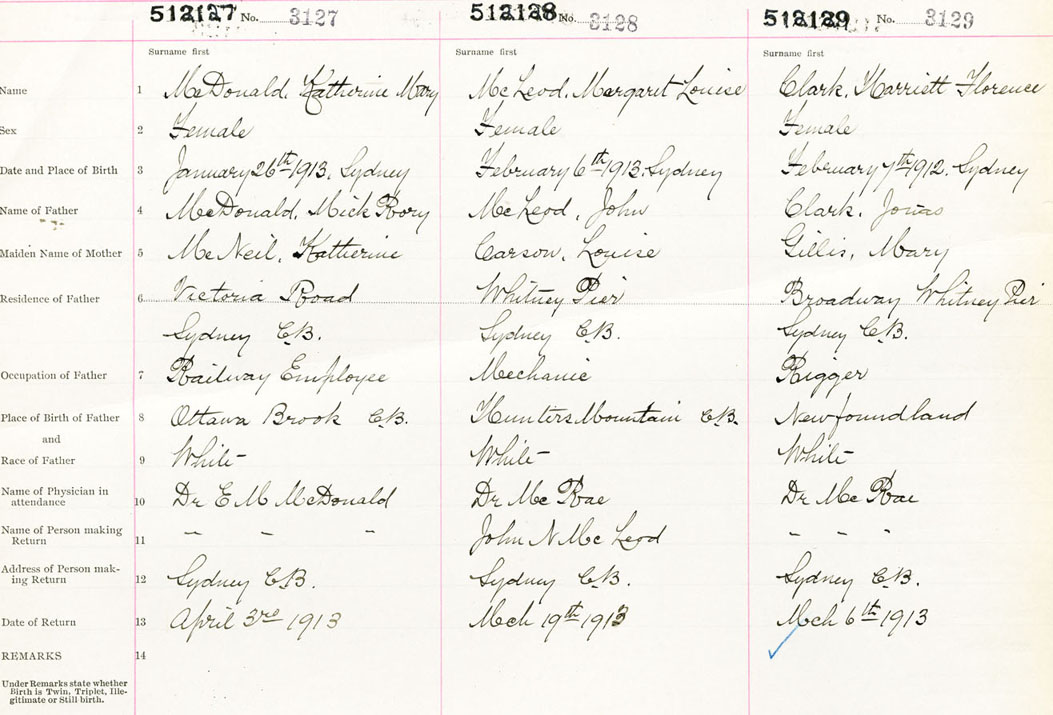 512127 No. 3127 512128 No. 3128 512129 No. 3129
Surname first Surname first Surname first
Name 1 McDonald, Katherine Mary McLeod, Margaret Louise Clark, Harriett Florence
Sex 2 Female Female Female
Date and Place of Birth 3 January 26th 1913, Sydney February 6th 1913. Sydney February 7th 1912. Sydney
Name of Father 4 McDonald, Mick Rory McLeod, John Clark, Jonas
Maiden Name of Mother 5 McNeil, Katherine Carson, Louise Gillis, Mary
Residence of Father 6 Victoria Road Whitney Pier Broadway Whitney Pier
Sydney C.B. Sydney C.B. Sydney C.B.
Occupation of Father 7 Railway Employee Mechanic Rigger
Place of Birth of Father 8 Ottawa Brook C.B. Hunters Mountain C.B. Newfoundland
and
Race of Father 9 White White White
Name of Physician in
attendance 10 Dr E M McDonald Dr McRae Dr McRae
Name of Person making
Return 11 – – – John N McLeod – – –
Address of Person mak-
ing Return 12 Sydney C.B. Sydney C.B. Sydney C.B.
Date of Return 13 April 3rd 1913 Mch 19th 1913 Mch 6th 1913
REMARKS 14
Under Remarks state whether
Birth is Twin, Triplet, Ille-
gitimate or Still birth.